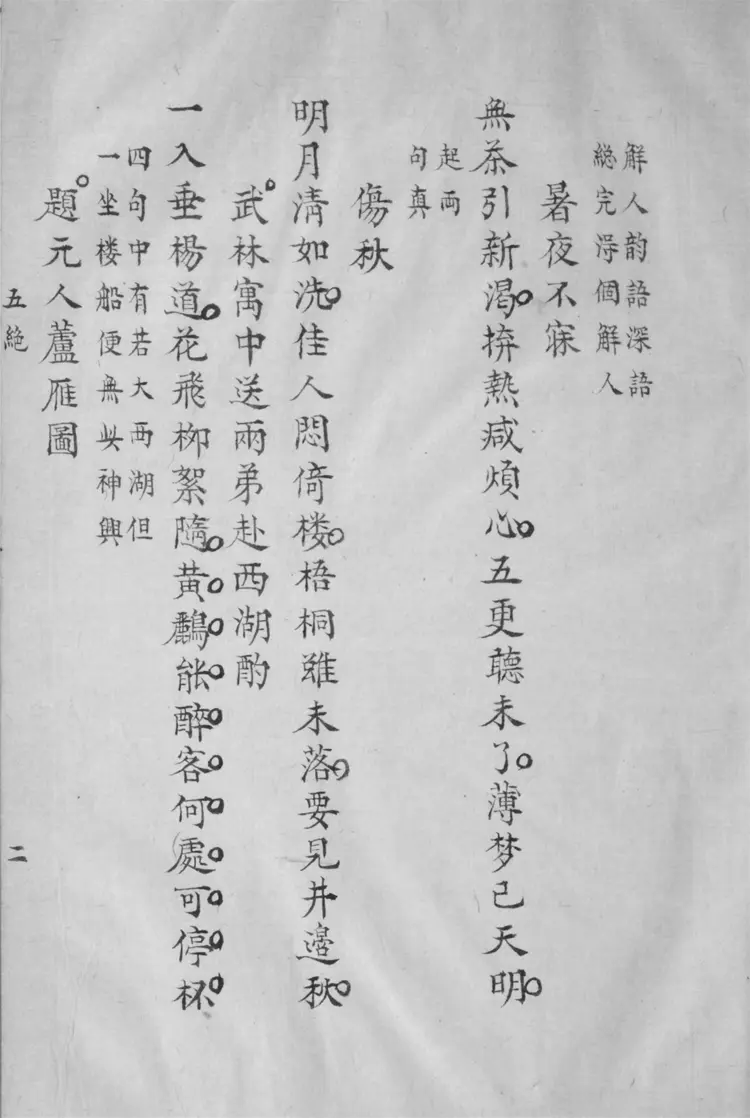 解人韵語深語
總完淂個解人
暑夜不寐
無茶引新渴拚熱咸煩心五更聽未了薄梦已天明
起兩
句真
傷秋
明月清如洗佳人悶倚楼梧桐雖未落要見井邉秋
武林寓中送兩弟赴西湖酌
一入垂楊道花飛柳絮隨黄鸝能醉客何處可停杯
四句中有若大西湖但
一坐楼船便無此神興
題元人蘆雁圖
五絶
二